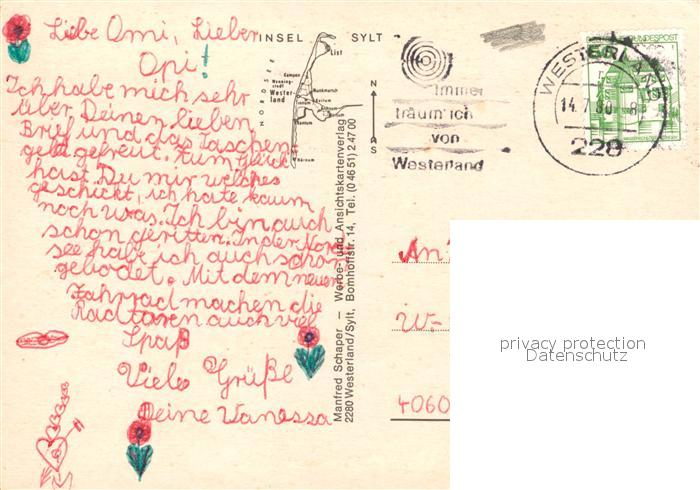 Liebe Omi, Lieber
Opi!
Ich habe mich sehr
über Deinen lieben
Brief und das Taschen
geld gefreut. Zum Glück
hast Du mir welches
geschickt, ich hate kaum
noch was. Ich bin auch
schon geritten. In der Nord
see habe ich auch schon
gebadet. Mit dem neuen
Fahrrad machen die
Rad toren auch viel
Spaß
Viele Grüße
Deine Vanessa
INSEL SYLT
NORDSEE
List
Kampen
Wenning-
stedt
Wester-
land
Munkmarsch
Keitum
Archsum
Morsum
Rantum
Hörnum
N
S
Manfred Schaper – Werbe- und Ansichtskartenverlag
2280 Westerland/Sylt, Bomhoffstr. 14, Tel. (0 46 51) 2 47 00
Immer
träum' ich
von
Westerland
WESTERLAND
14.7.80
228
BUNDESPOST
An
W.-
4060
privacy protection
Datenschutz